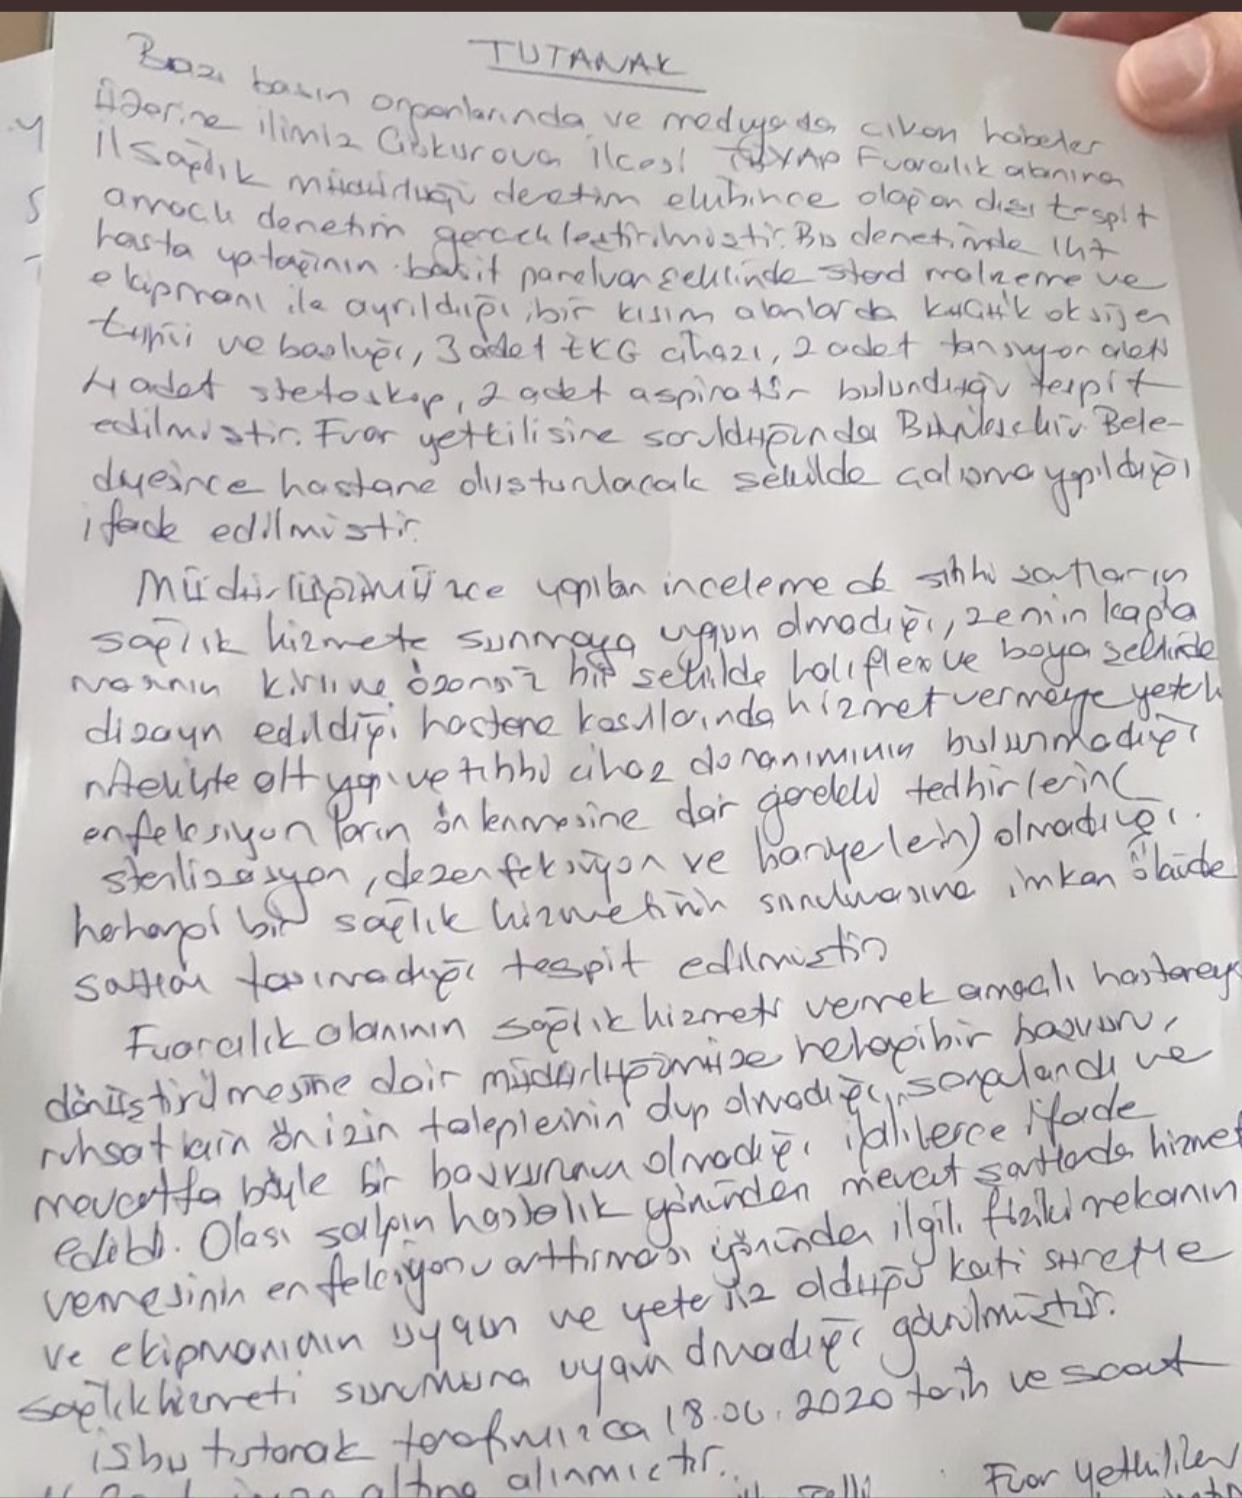 TUTANAK
Bazı basın organlarında ve medyada çıkan haberler
üzerine ilimiz Çukurova ilçesi TÜYAP Fuarcılık alanına
İl Sağlık müdürlüğü denetim ekibince olağan dışı tespit
amaçlı denetim gerçekleştirilmiştir. Bu denetimde 147
hasta yatağının basit paravan şeklinde stand malzeme ve
ekipmanı ile ayrıldığı, bir kısım alanlarda küçük oksijen
tüpü ve başlığı, 3 adet EKG cihazı, 2 adet tansiyon aleti
4 adet stetoskop, 2 adet aspiratör bulunduğu tespit
edilmiştir. Fuar yetkilisine sorulduğunda Büyükşehir Bele-
diyesince hastane oluşturulacak şekilde çalışma yapıldığı
ifade edilmiştir.
Müdürlüğümüzce yapılan incelemede sıhhi şartların
sağlık hizmete sunmaya uygun olmadığı, zemin kapla
masının kirli ve özensiz bir şekilde halıflex ve boya şeklinde
dizayn edildiği hastane koşullarında hizmet vermeye yeterli
nitelikte alt yapı ve tıbbi cihaz donanımının bulunmadığı
enfeksiyonların önlenmesine dair gerekli tedbirlerin(
sterilizasyon, dezenfeksiyon ve banyo) olmadığı.
herhangi bir sağlık hizmetinin sunulmasına imkan ölçüde
şartları taşımadığı tespit edilmiştir
Fuarcılık alanının sağlık hizmeti vermek amaçlı hastaneye
dönüştürülmesine dair müdürlüğümüze herhangi bir başvuru,
ruhsat için ön izin taleplerinin olup olmadığı sorgulandı ve
mevcutta böyle bir başvurunun olmadığı ilgililerce ifade
edildi. Olası salgın hastalık yönünden mevcut şartlarda hizmet
vermesinin enfeksiyonu arttırması yönünden ilgili fiziki mekanın
ve ekipmanının uygun ve yetersiz olduğu kati suretle
sağlık hizmeti sunumuna uygun olmadığı görülmüştür.
işbu tutanak tarafımızca 18.06.2020 tarih ve saat
altına alınmıştır.
Fuar Yetkilileri